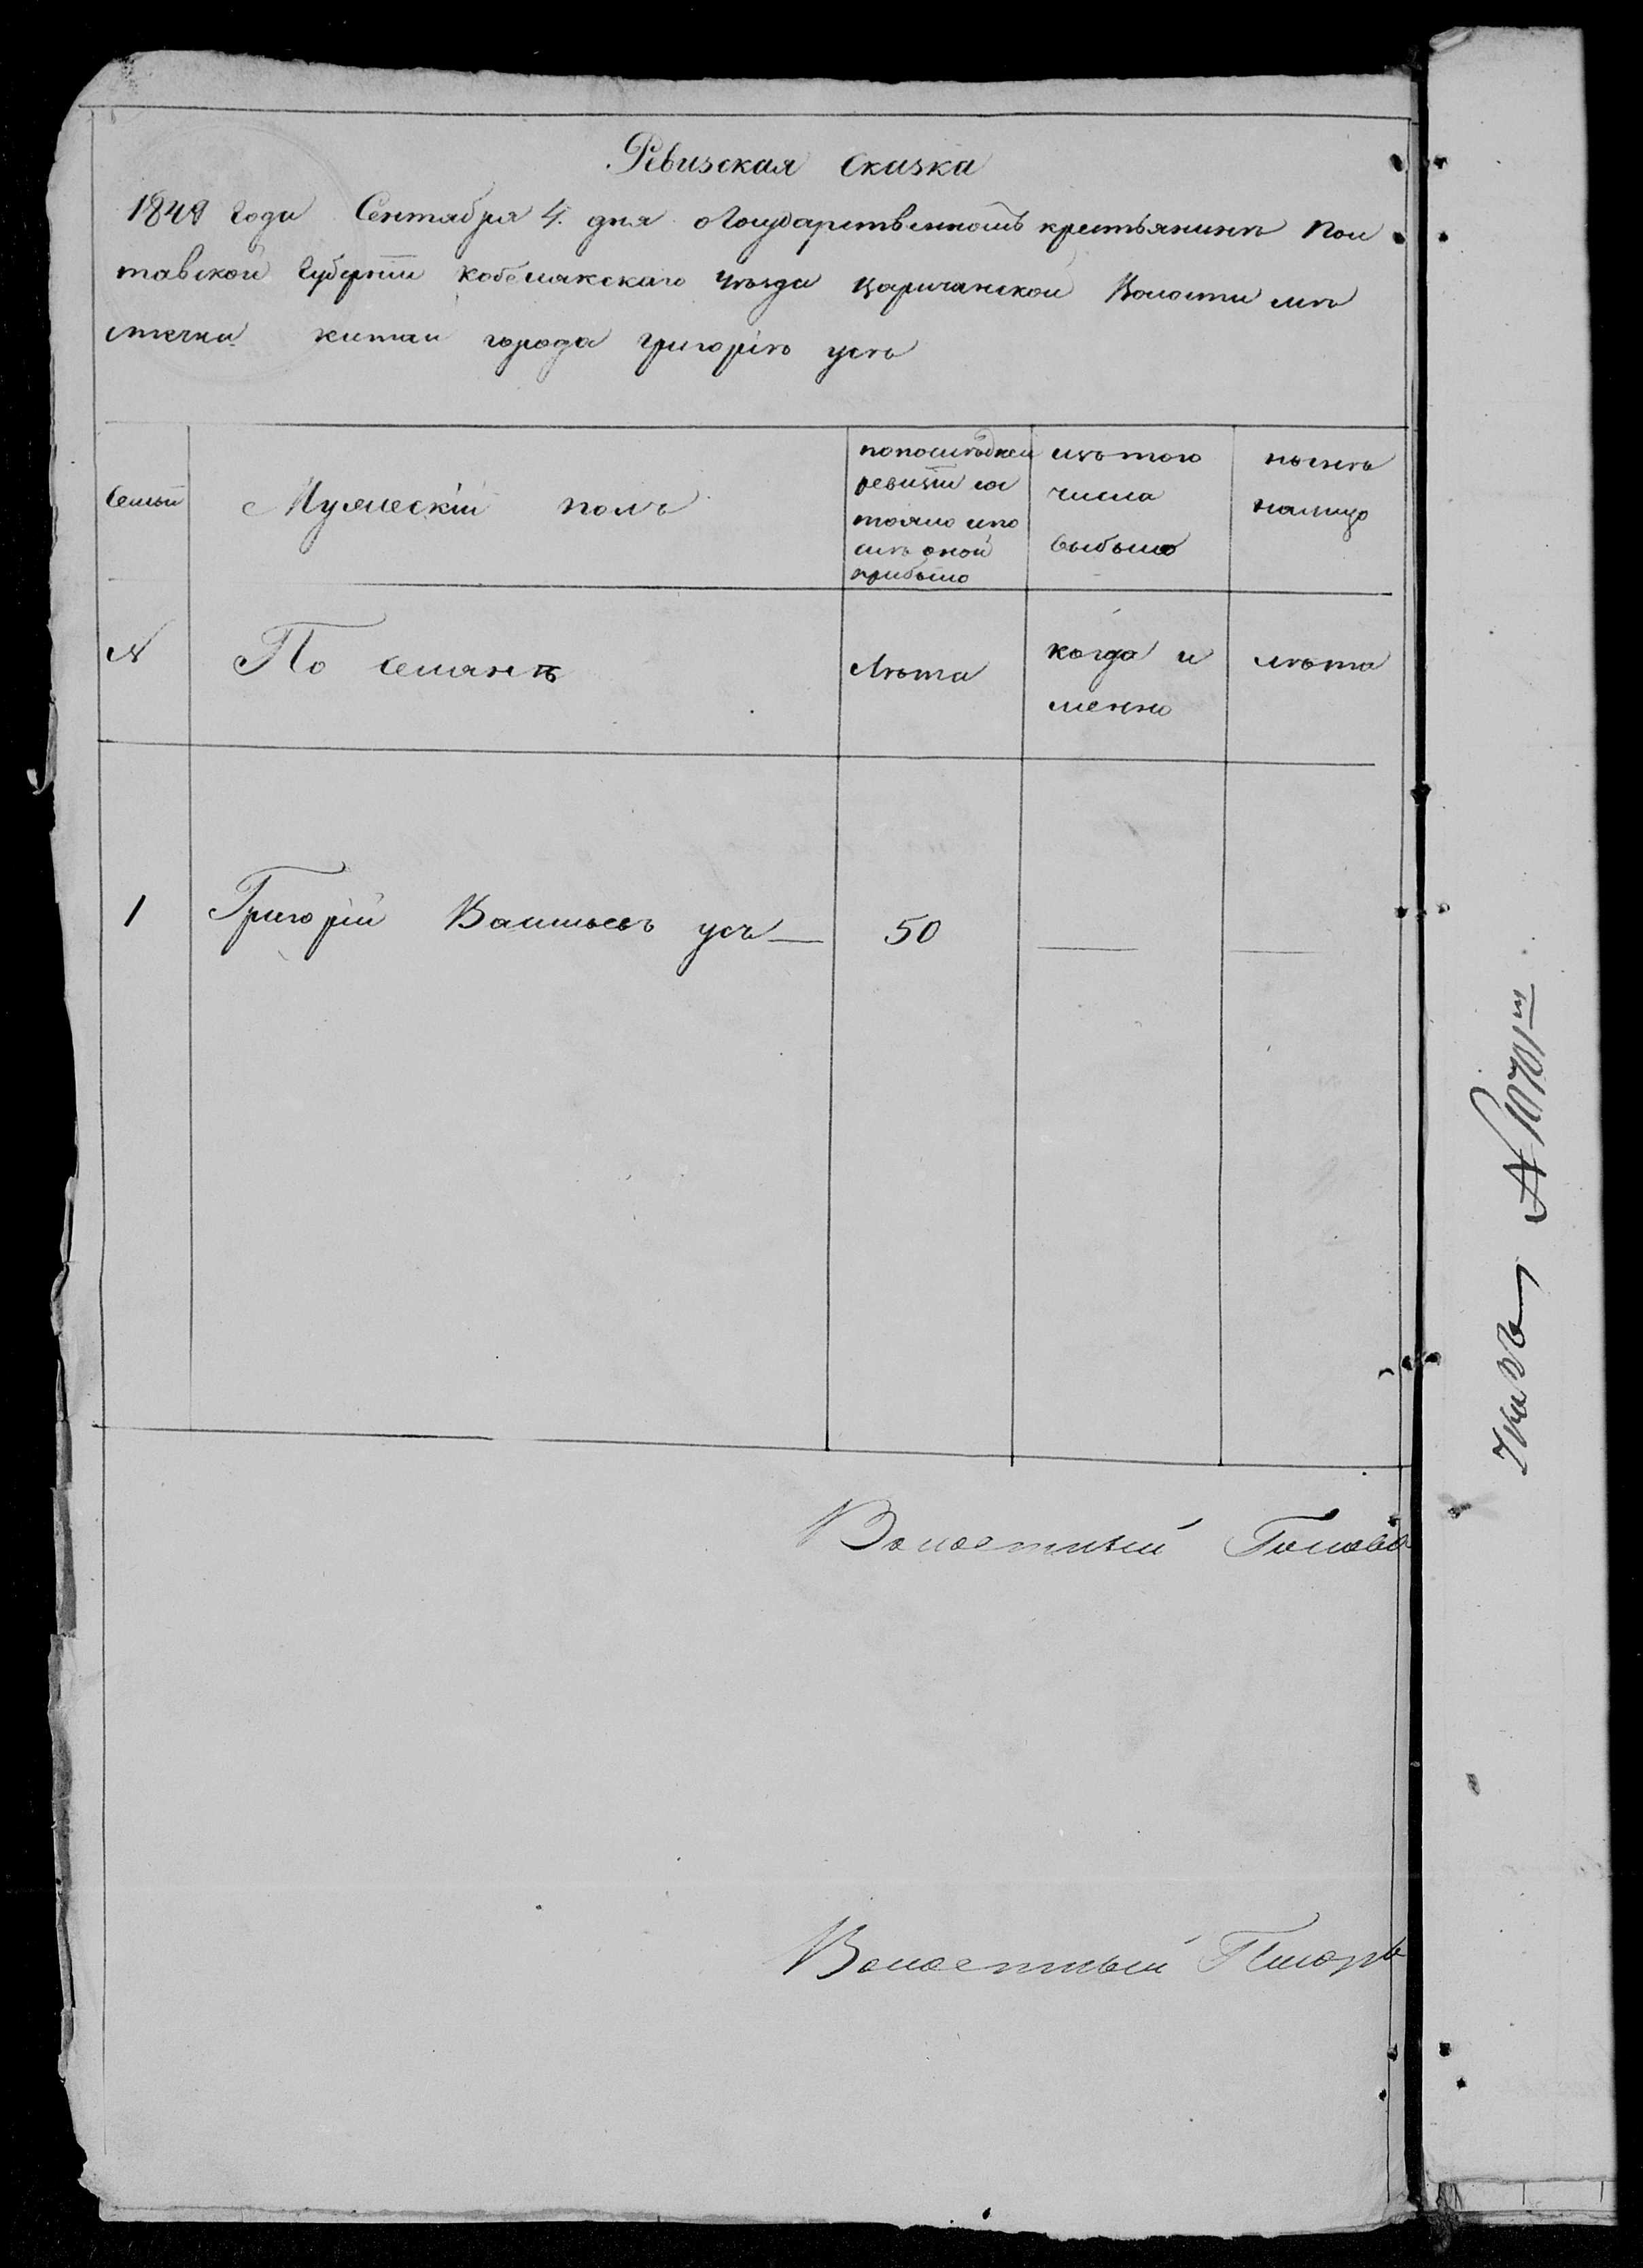 Ревизская Сказка
1849 Года Сентября 4. дня оГосударственномъ крестьянинѣ Пол
тавской Губерніи Кобелякскаго уѣзда Царичанской Волости мѣ
стечка Китай города Григоріѣ усѣ
Семьи
Мужескій полъ
попослѣдней
ревизіи сос
тояло ипо
слѣ оной
прибыло
изъ того
числа
выбыло
нынѣ
налицо
№
По семянѣ
Лѣта
когда и
менно
лѣта
1 Григорій Васильевъ усъ — 50 — —
Волостный Голова
Волостный Писарь
№ 10701